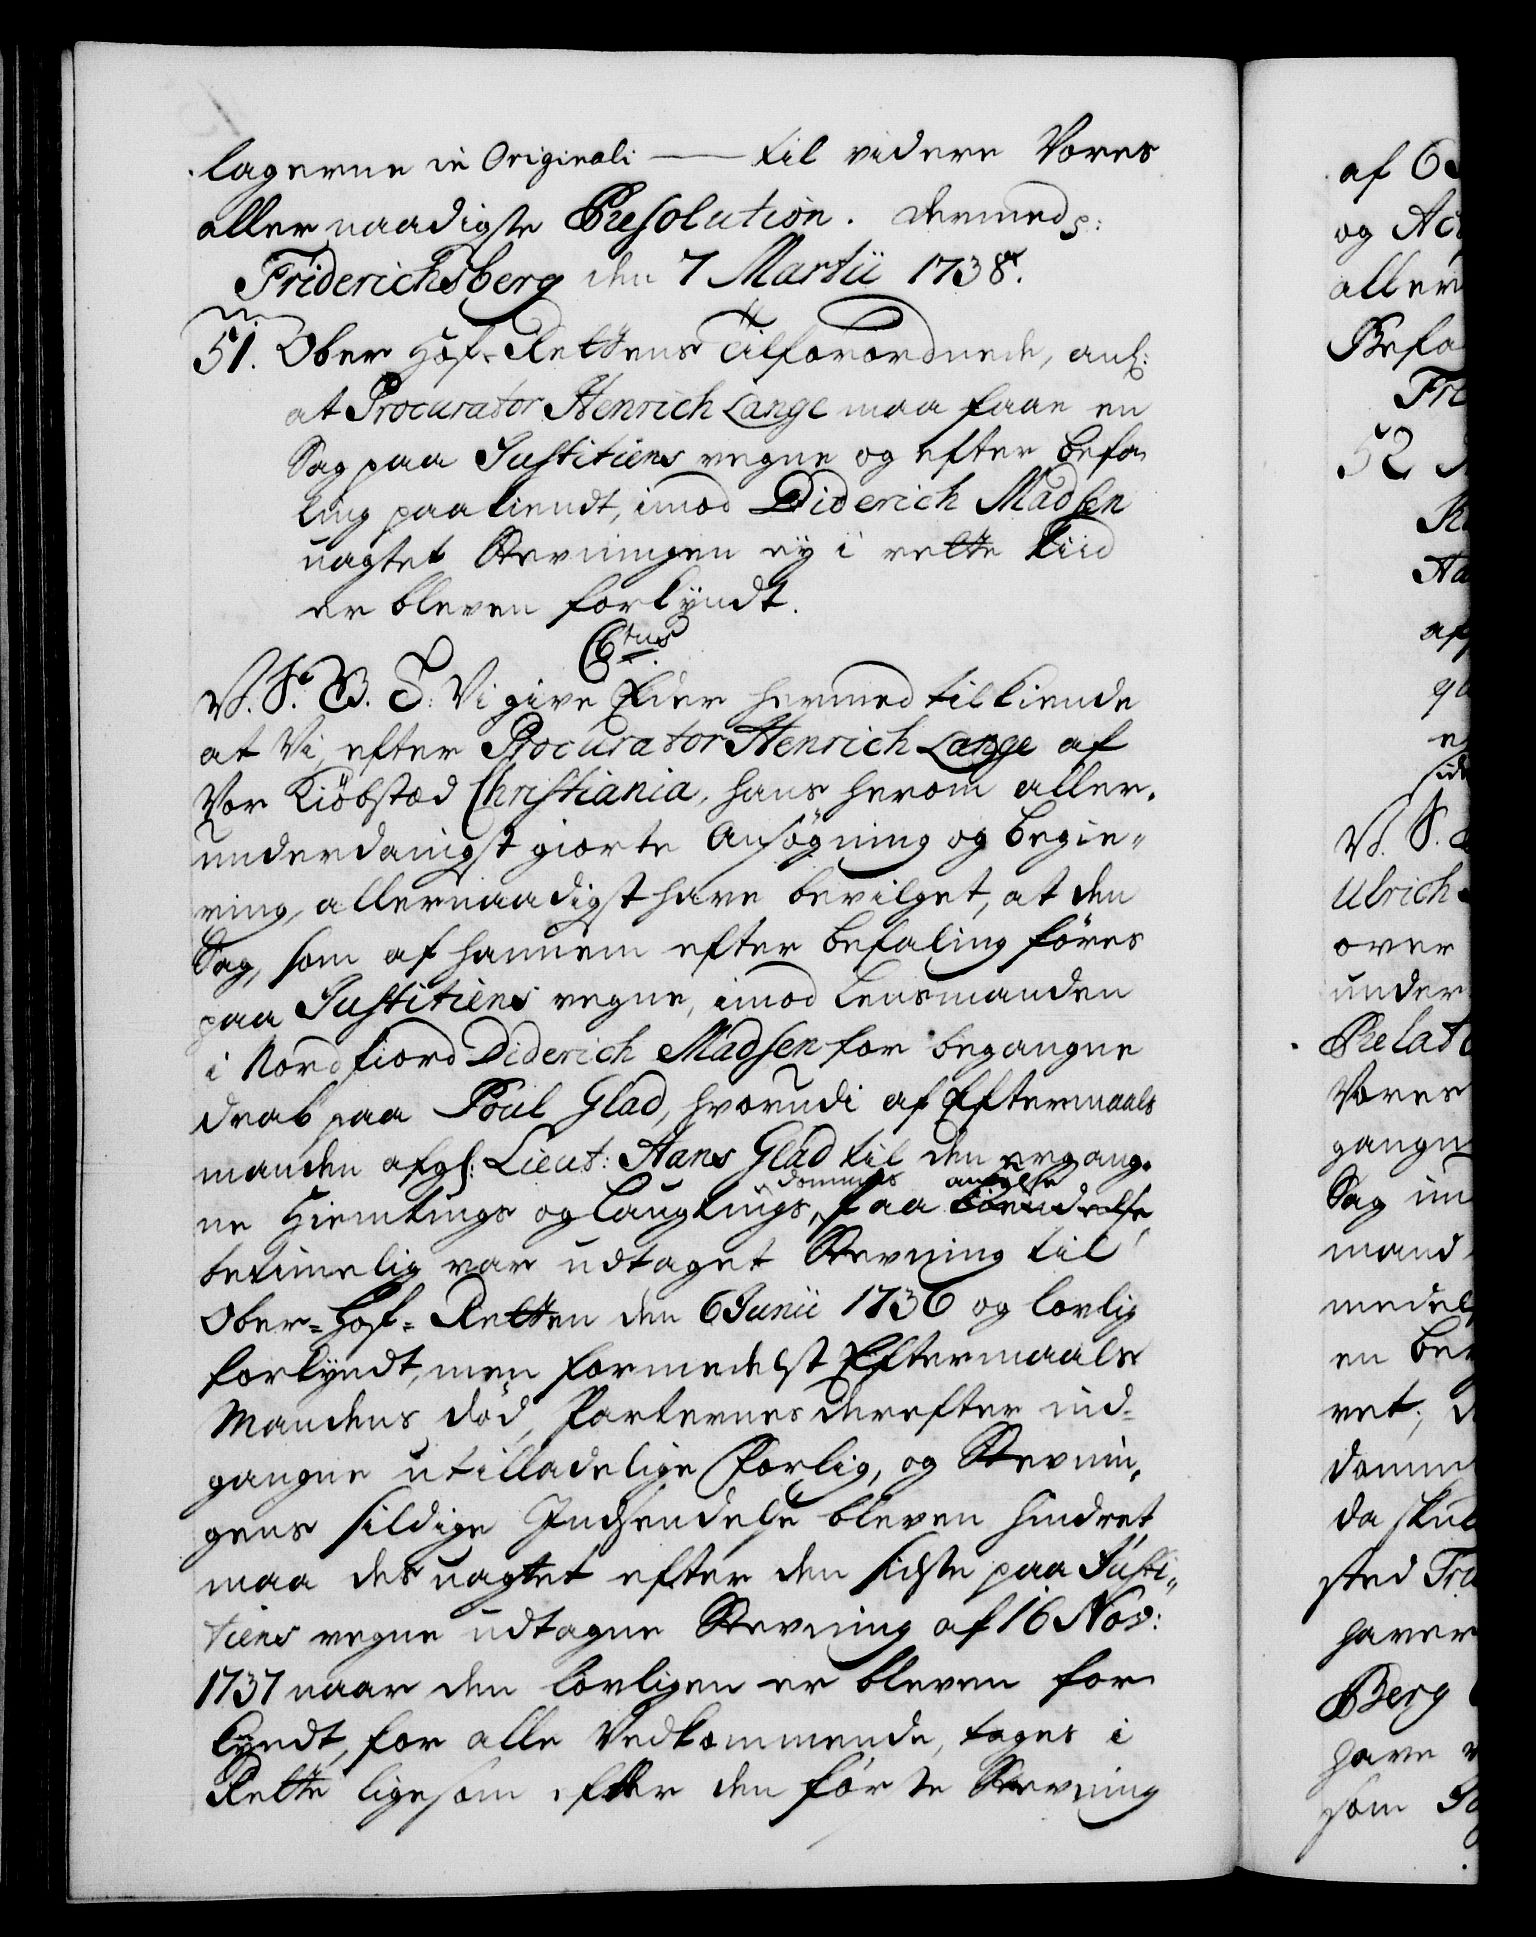 lagerne in Originali — til videre Vores
allernaadigste Resolution. dermed p:
Friderichsberg den 7 Martii 1738.
51. Ober Hof-Rettens Tilforordnede, anl:
at Procurator Henrich Lange maa faae en
Sag paa Justitiens vegne og efter befa-
ling paakiendt, imod Diderich Madsen
uagtet Stevningen ey i rette tiid
er bleven forkyndt.
C6tus
V. S. G. T: Vi give Eder hermed tilkiende
at Vi, efter Procurator Henrich Lange af
Vor Kiöbstæd Christiania, hans herom aller-
underdanigst giorte Ansögning og begie-
ring, allernaadigst have bevilget, at den
Sag, som af hannem efter befaling föres
paa Justitiens vegne, imod Lensmanden
i Nordfiord Diderich Madsen for begangne
drab paa Poul Glad, hvorudi af Eftermaals
manden afgl: Lieut: Hans Glad til den ergang-
ne Hiemtings og Laugtings, domme paa
betimelig var udtaget Stevning til
Ober-Hof-Retten den 6 Junii 1736 og lovlig
forkyndt, men formedelst Eftermaals
Mandens död, Parternes derefter ind-
gangne utilladelige Forlig, og Stevnin-
gens sildige Indsendelse bleven hindret,
maa des uagtet efter den sidste paa Justi-
tiens vegne udtagne Stevning af 16 Nov:
1737 naar den lovligen er bleven for-
kyndt, for alle Vedkommende, tages i
Rette ligesom efter den förste Stevning
af
og
aller
Befa
Fri
52
V. S.
Ulrich
over
under
Relat
Vores
gangn
Sag im
mand
medels
en
ret;
domm
da skul
sted
haver
Berg
have
som